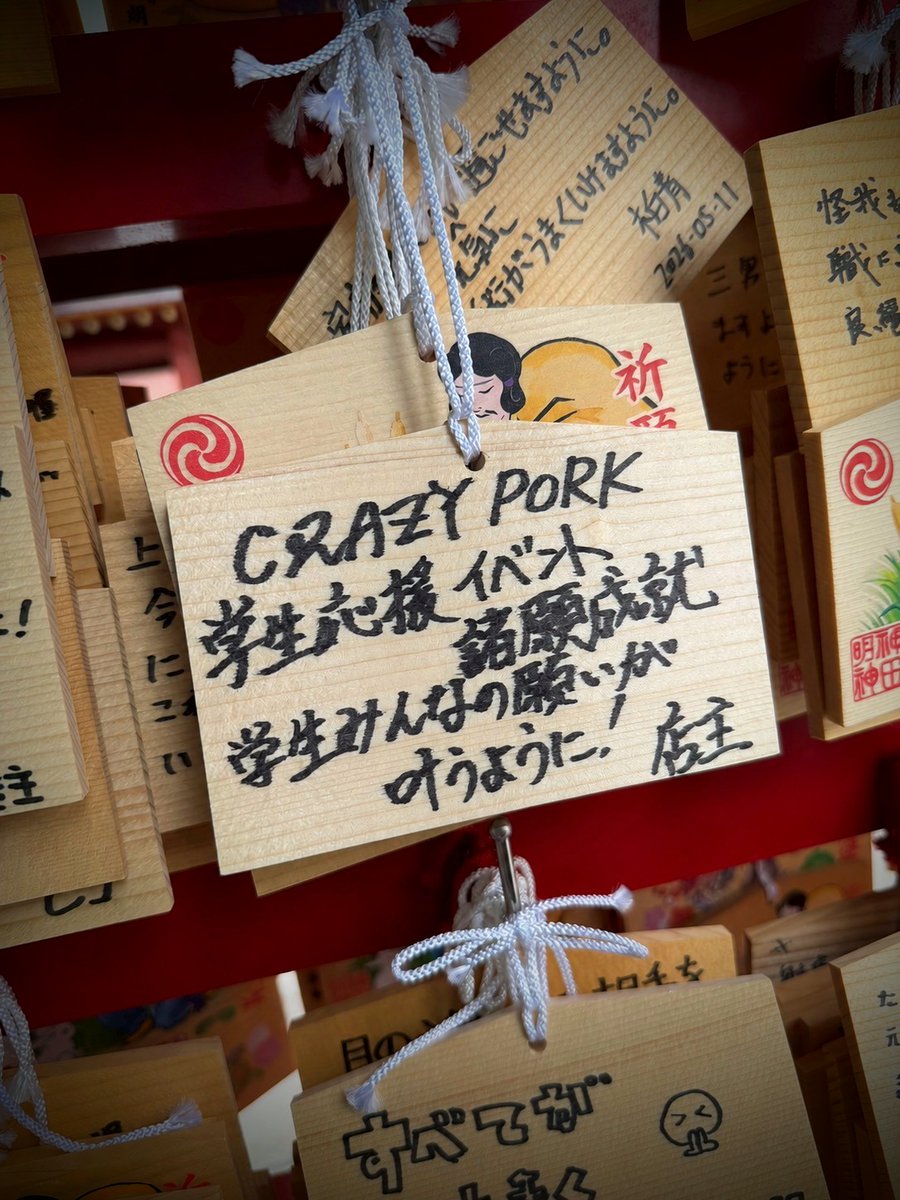 過ごせますように。
元気に
うまくいけますように。
柏青
2025.05.11
怪我も
職に
良縁
三男
ますよ
ように
祈
願
CRAZY PORK
学生応援 イベント
諸願成就
学生みんなの願いが
叶うように!! 店主
上
今
に
これ
い
主
神田
明神
目の
相手を
すべてが